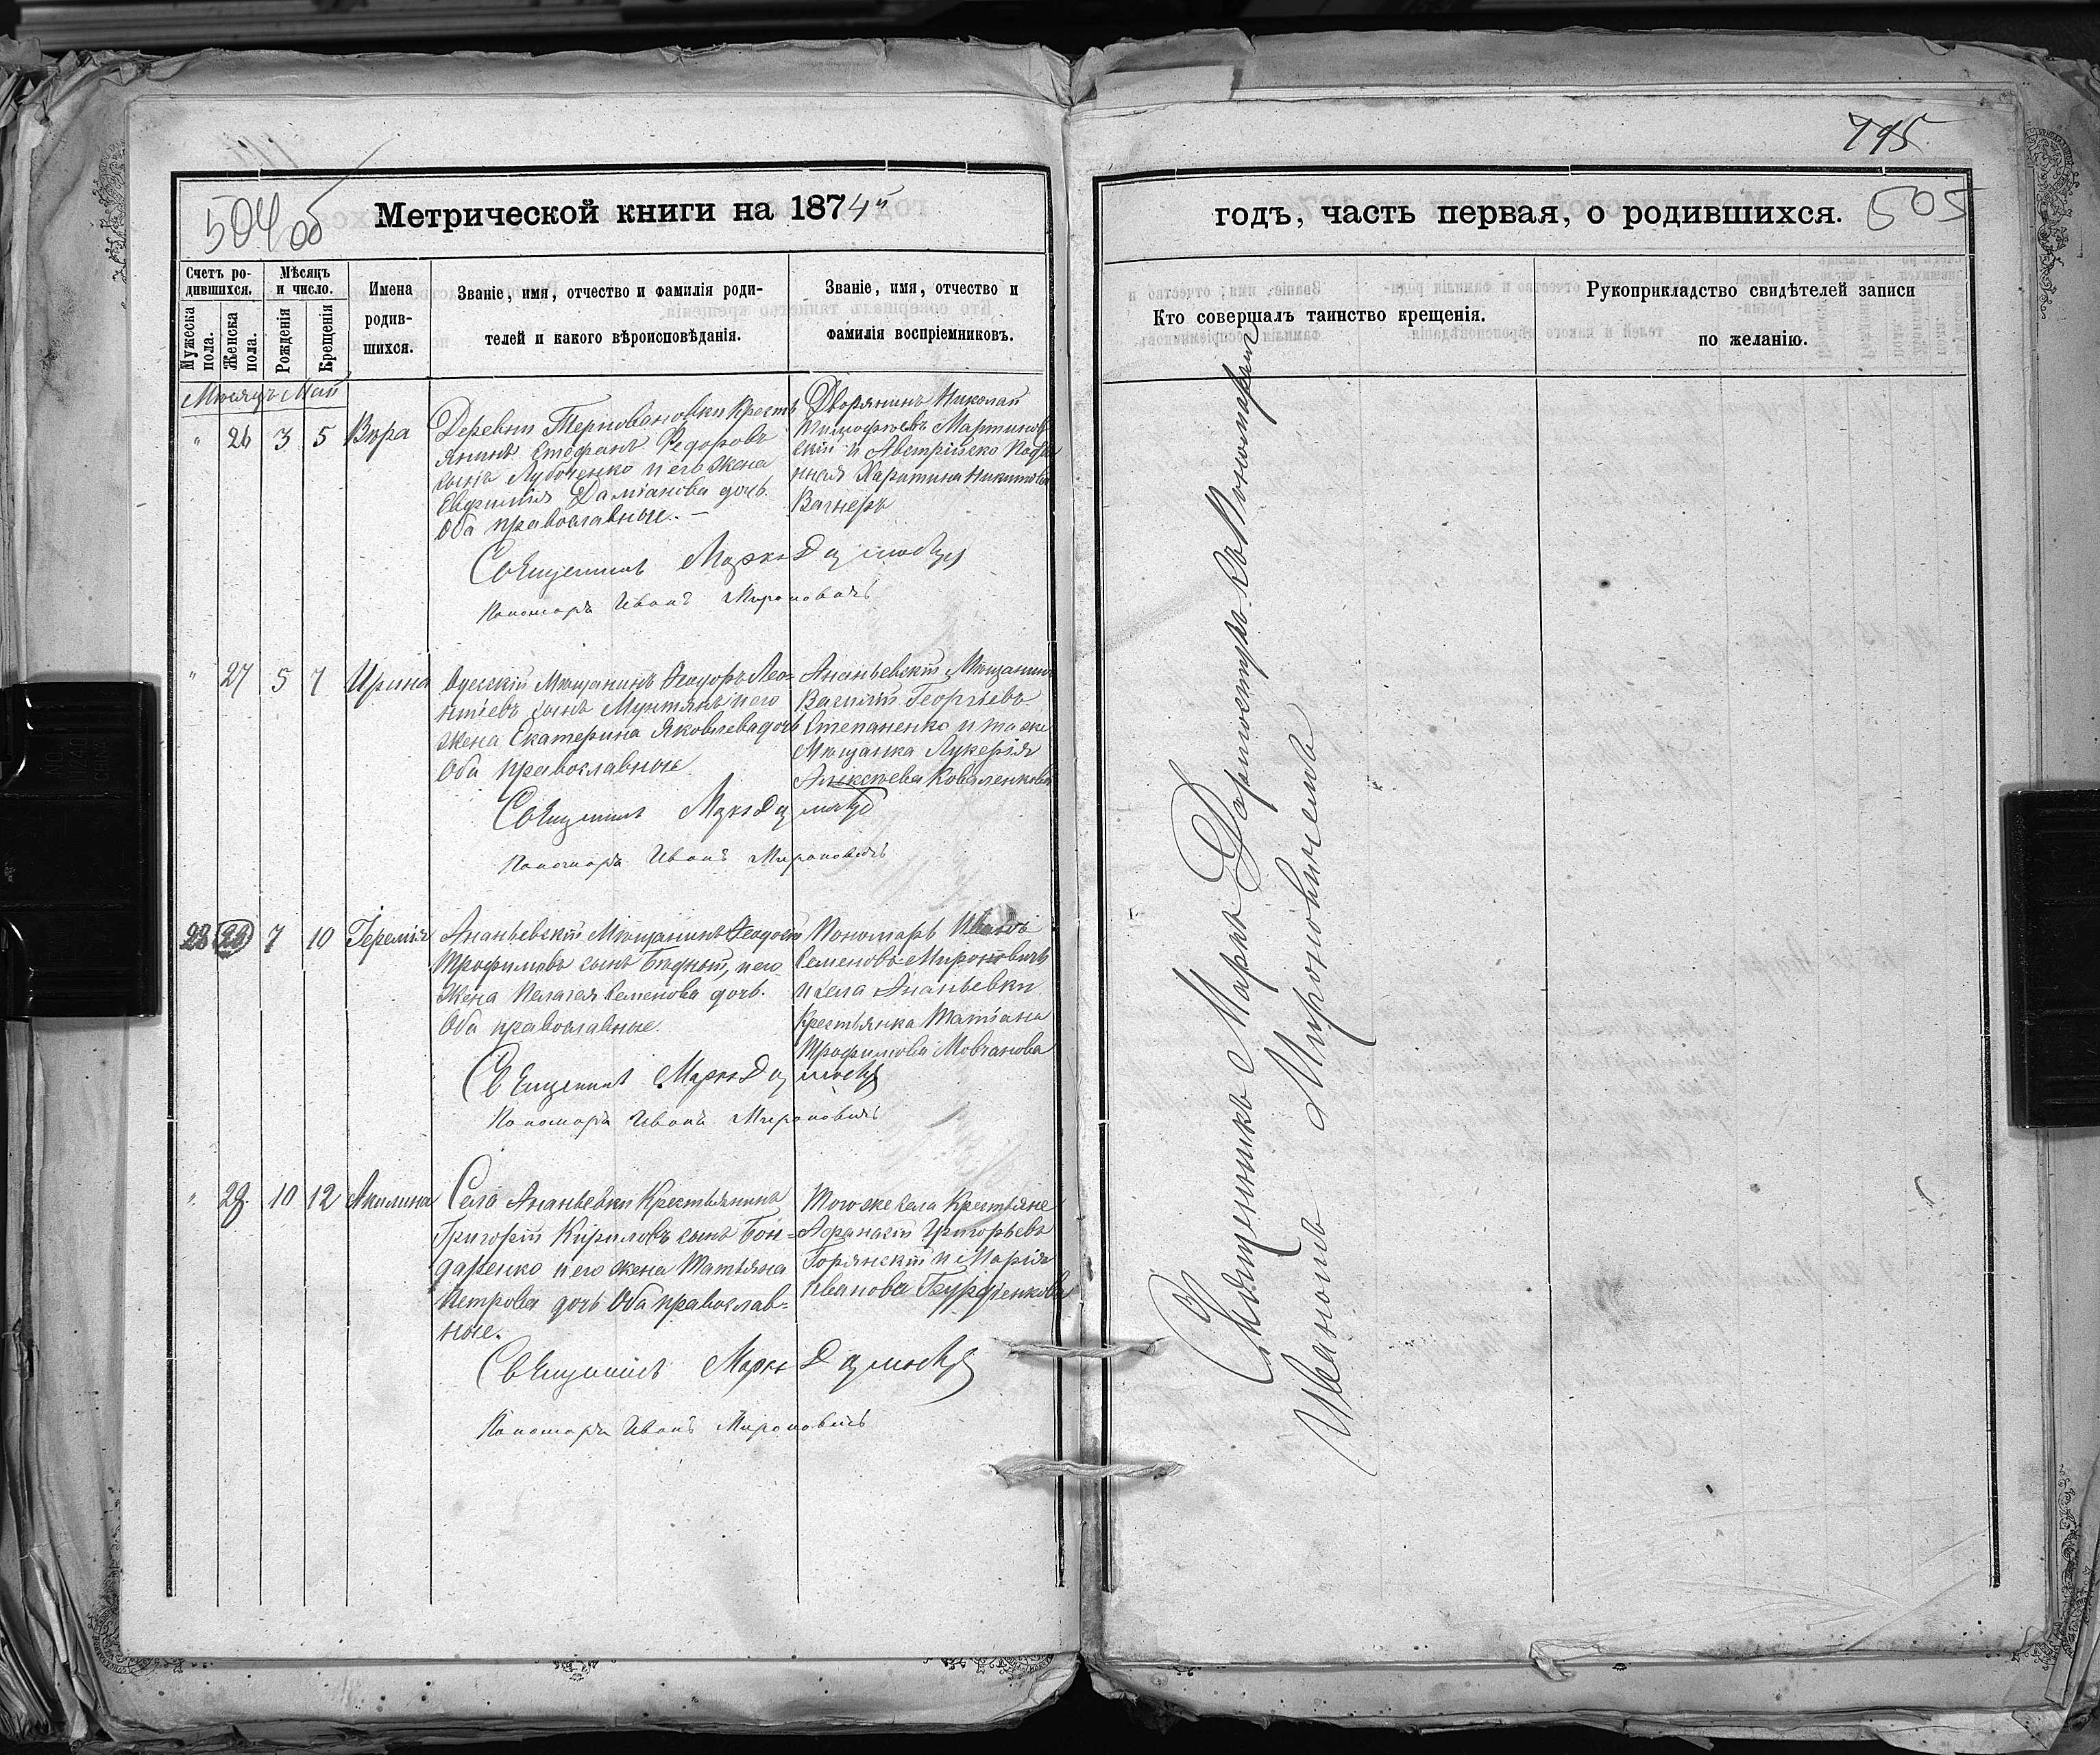 795
504об
Метрической книги на 1874й
годъ, часть первая, о родившихся.
505
Счетъ родившихся.
Мѣсяцъ и число.
Мужеска пола.
Женска пола.
Рожденія
Крещенія
Имена родившихся.
Званіе, имя, отчество и фамилія роди-
телей и какого вѣроисповѣданія.
Званіе, имя, отчество и
фамилія воспріемниковъ.
Кто совершалъ таинство крещенія.
Рукоприкладство свидѣтелей записи
по желанію.
Мѣсяцъ Май
" 26 3 5 Вѣра
Деревни Терновановки Кресть
янинъ Стефанъ Федоровъ
сынъ и его жена
Евфимія Даміанова дочь.
Оба православные. —
Дворянинъ Николай
Тимофѣевъ Мартинов
скій и Австрійско Подда
нная Харитина Никитова
Вагнеръ
Священникъ Маркъ
Пономарь Иванъ Мироновичъ
" 27 5 7 Ирина
Одесскій Мѣщанинъ Феодоръ Лео=
нтіевъ сынъ Мунтянъ и его
жена Екатерина Яковлева дочь
Оба православные
Ананьевскій Мѣщанинъ
Василій Георгіевъ
Степаненко и та же
Мѣщанка Лукерія
Алексѣева Коваленкова
Священникъ Маркъ
Пономарь Иванъ Мироновичъ
28 28 7 10 Іеремія
Ананьевскій Мѣщанинъ Феодосій
Трофимовъ сынъ Бѣдный, и его
жена Пелагея Семенова дочь.
Оба православные.
Пономарь Иванъ
Семеновъ Мироновичъ
и села Ананьевки
Крестьянка Татіана
Трофимова Мовчанова
Священникъ Маркъ
Пономарь Иванъ Мироновичъ
" 28 10 12 Акилина
Села Ананьевки Крестьянинъ
Григорій Кириловъ сынъ Бон=
даренко и его жена Татьяна
Петрова дочь Оба православ=
ные.
Того же села Крестьяне
Афанасій Григорьевъ
Горянскій и Марія
Иванова
Священникъ Маркъ
Пономарь Иванъ Мироновичъ
Священникъ Маркъ съ Пономаремъ
Иваномъ Мироновичемъ